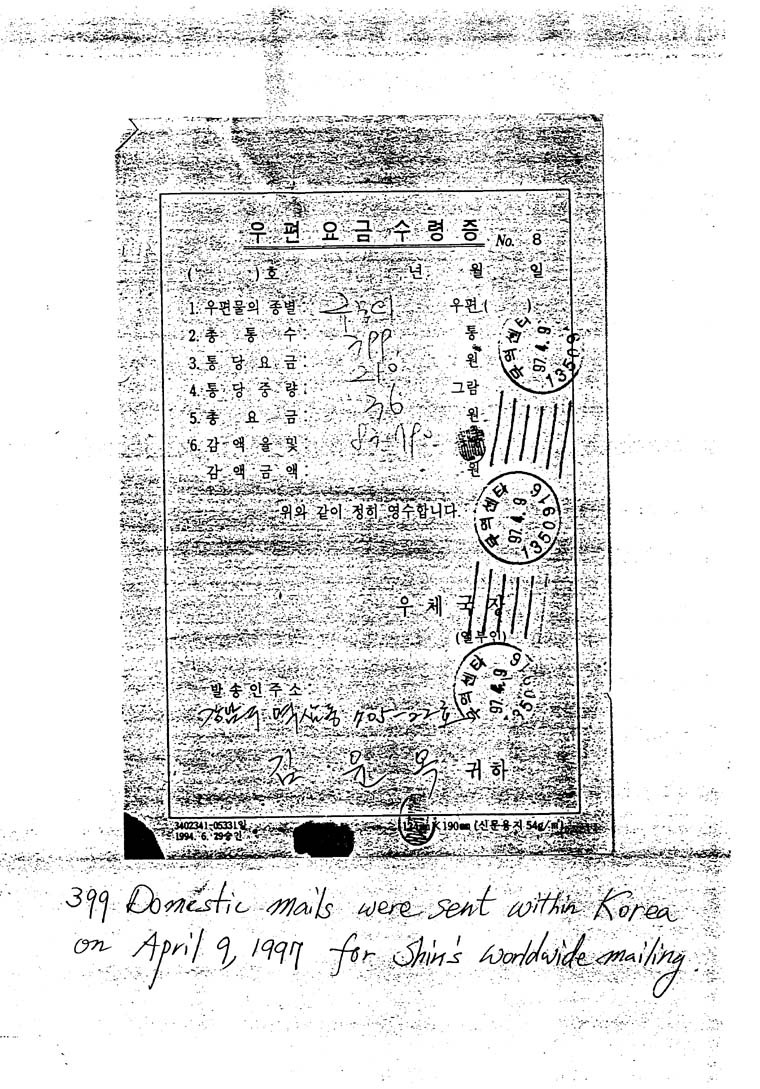 우편요금수령증 No. 8
( )호 년 월 일
1. 우편물의 종별 : 우편( )
2. 총 통 수 : 399 통
3. 통 당 요 금 : 210 원
4. 통 당 중 량 : 36 그람
5. 총 요 금 : 83790 원
6. 감 액 율 및
감 액 금 액 원
위와 같이 정히 영수합니다
우 체 국 장
(일부인)
발 송 인 주 소 :
강남구 705-22호
김 윤 옥 귀하
3402341-05331일
1994. 6. 29승인
190㎜ (신문용지 54g/㎡)
무역센타
97.4.9
무역센타
97.4.9
135091
무역센타
97.4.9
399 Domestic mails were sent within Korea
on April 9, 1997 for Shin's worldwide mailing